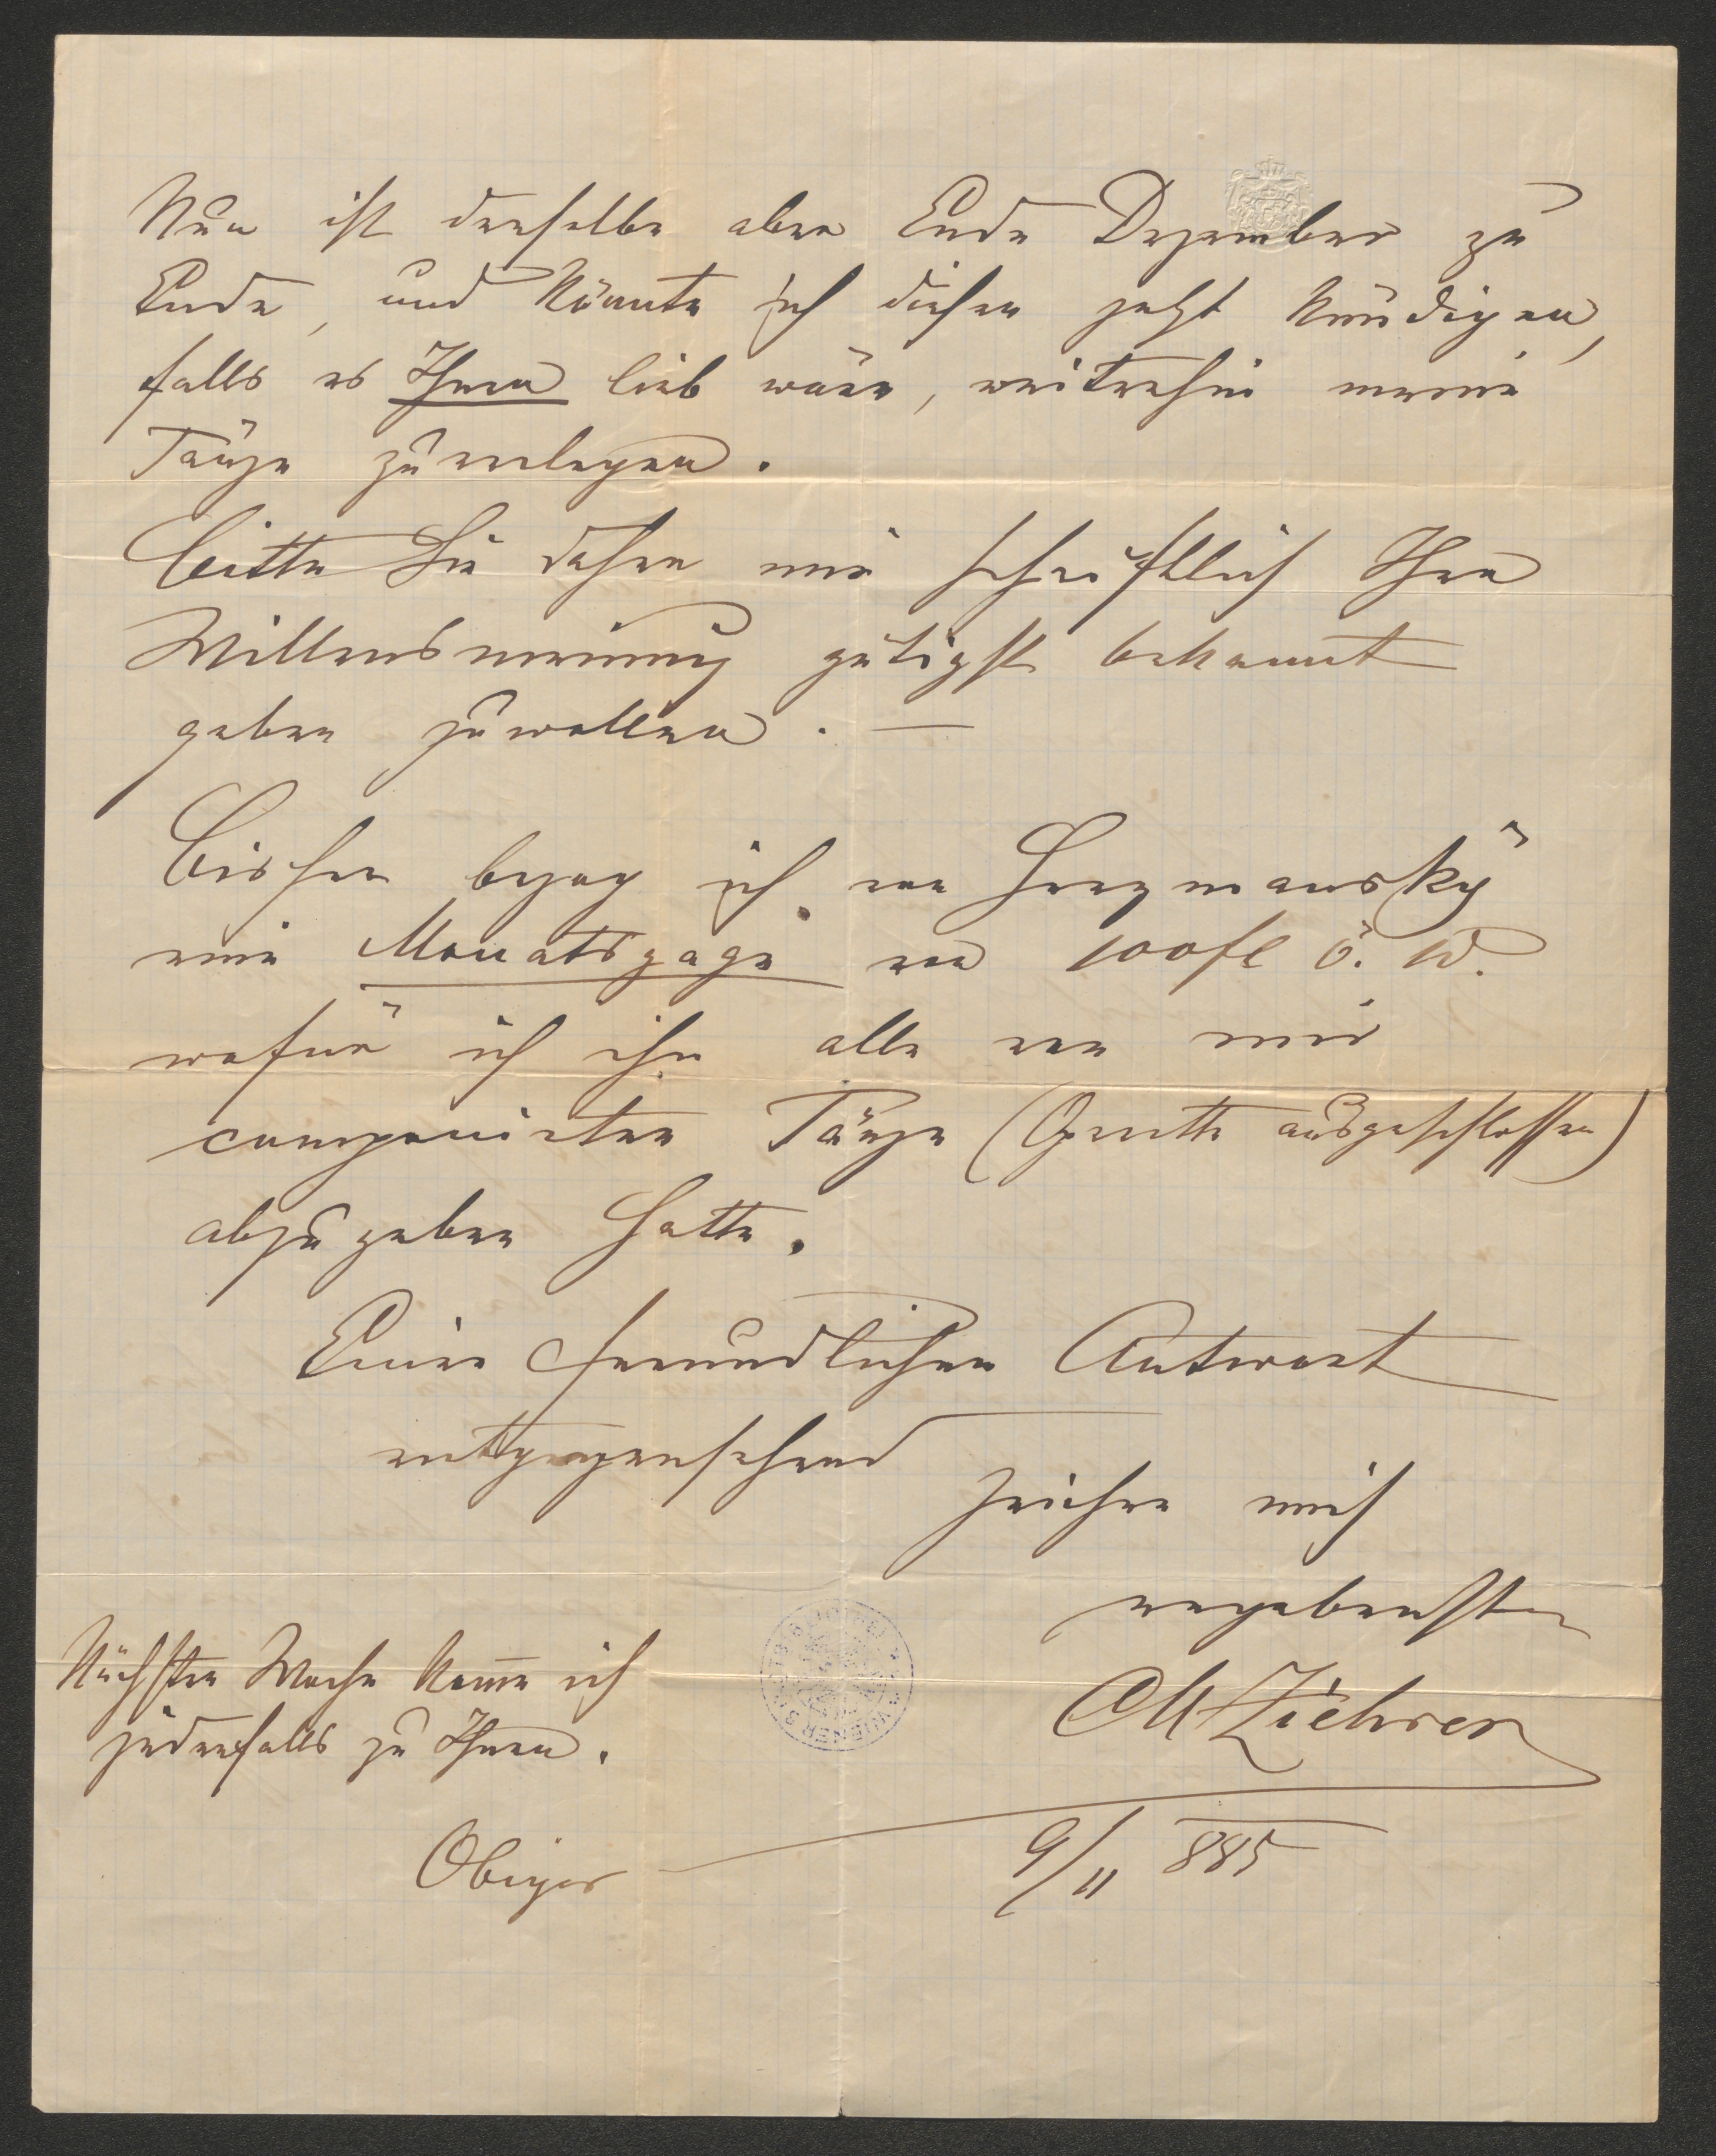 Nun ist derselbe aber Ende Dezember zu
Ende, und könnte ich diesen jetzt kündigen,
falls es Ihnen lieb wäre, weiterhin meine
Tänze zu verlegen.
Bitte Sie daher mir schriftlich Ihre
Willensmeinung gütigst bekannt
geben zu wollen. —
Bisher bezog ich von Herzmansky
eine Monatsgage von 100 fl ö. W.
wofür ich ihm alle von mir
componirten Tänze (Operette ausgeschlossen)
abzugeben hatte.
Einer freundlichen Antwort
entgegensehend
zeichne mich
ergebenster
CM Ziehrer
9/11 885
Nächsten Woche kom̅e ich
jedenfalls zu Ihnen.
Obiger